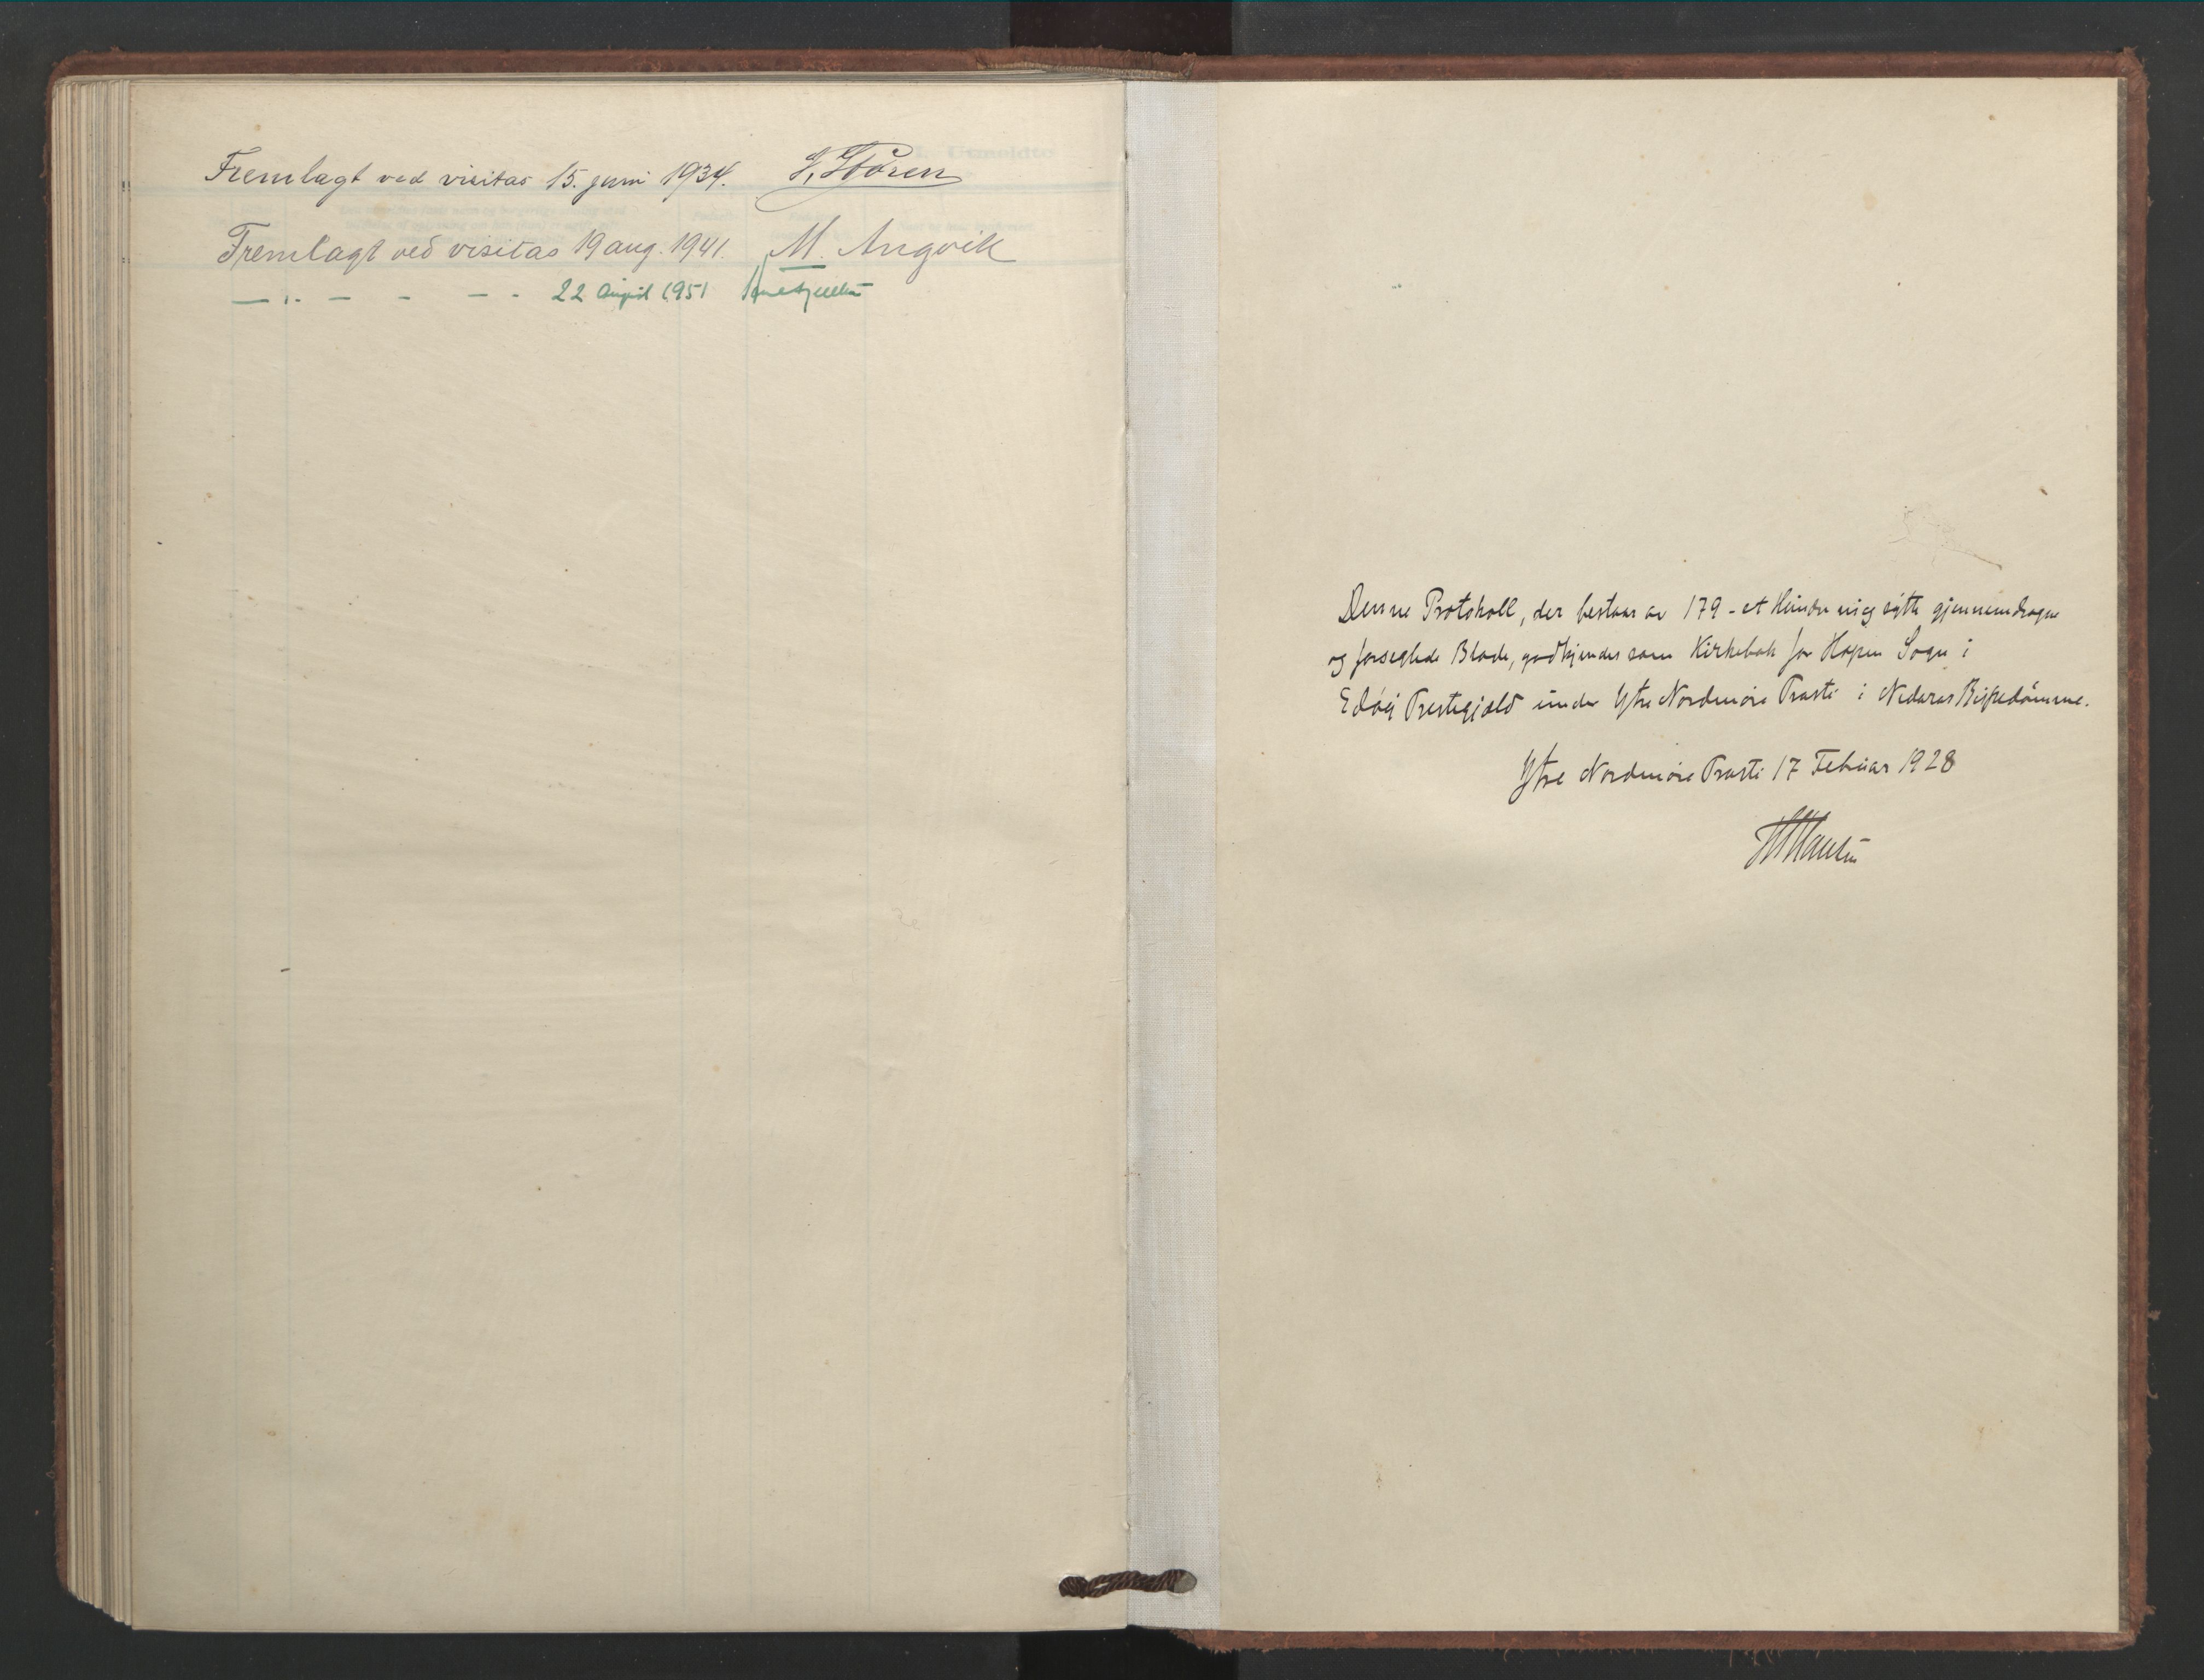 Fremlagt ved visitas 15. juni 1934. J. Støren
Fremlagt ved visitas 19 aug. 1941. M. Angvik
— " - — - — - 22 August 1951 Arne Fjellbu
Denne Protokoll, der bestaar av 179 - et Hundre nig sytti gjennemdragne
og forseglede Blade, godkjendes som Kirkebok for Hopen Sogn i
Edøy Prestegjeld under Ytre Nordmøre Prosti i Nidaros Bispedømme.
Ytre Nordmøre Prosti 17 Februar 1928